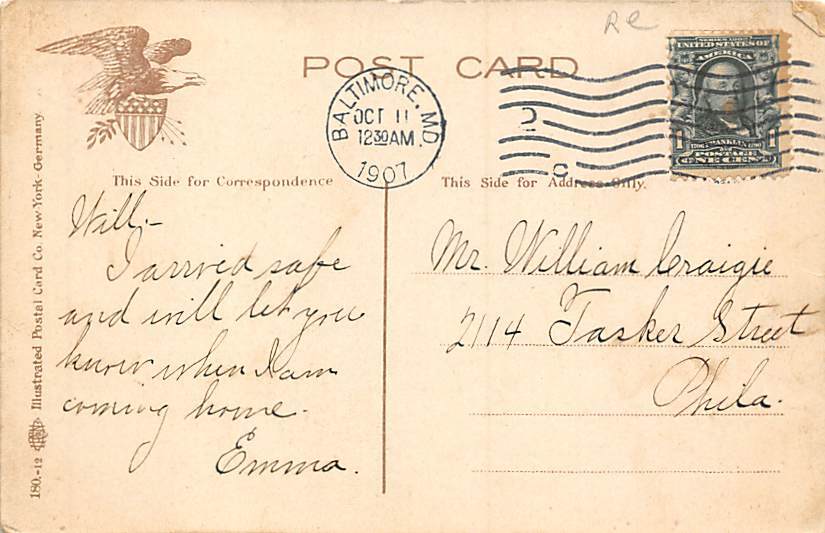 Re
POST CARD
SERIES 1902
UNITED STATES OF
AMERICA
1 1
FRANKLIN
POSTAGE
ONE CENT
BALTIMORE, MD.
OCT 11
12 30 AM.
1907
2
C
This Side for Correspondence
This Side for Address Only.
Will,-
I arrived safe
and will let you
know when I am
coming home.
Emma.
Mr. William Craigie
2114 Tasker Street
Phila.
180.-12 Illustrated Postal Card Co. New York-Germany.